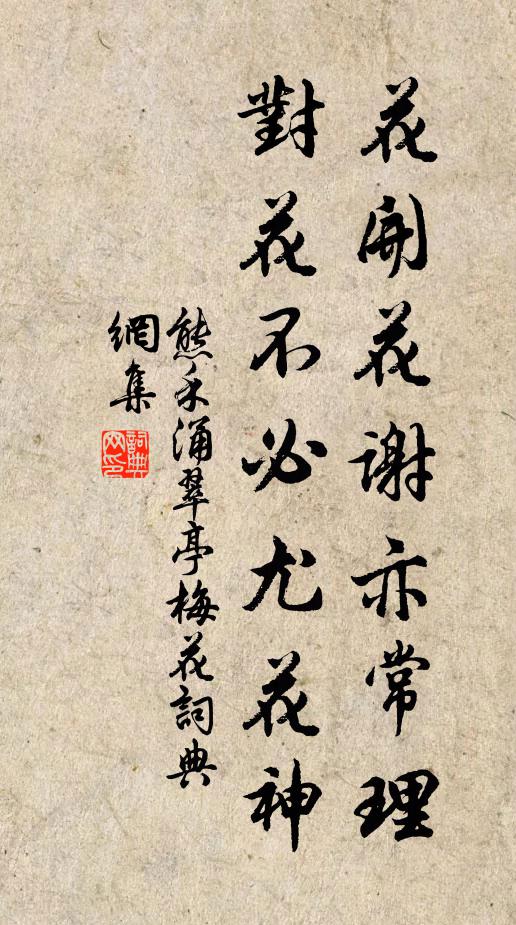 花開花謝亦常理
對花不必尤花神
熊禾涌翠亭梅花詞典
網集
詞典
网印